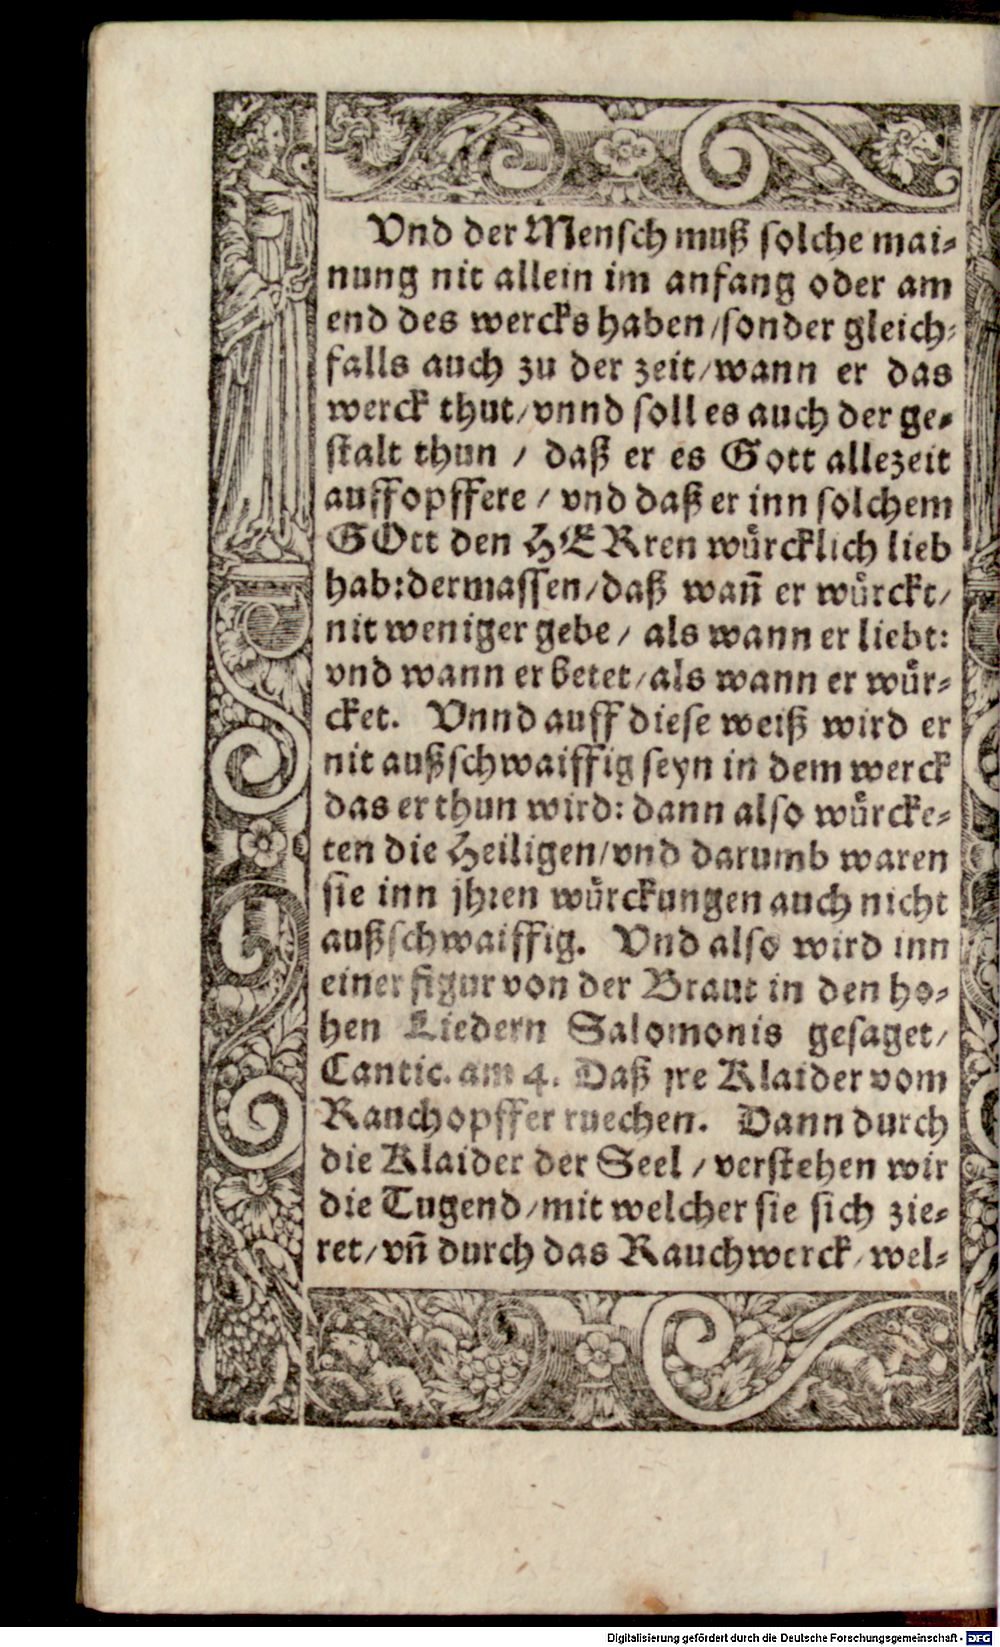 Vnd der Mensch muß solche mai-
nung nit allein im anfang oder am
end des wercks haben/sonder gleich-
falls auch zu der zeit/wann er das
werck thut/vnnd soll es auch der ge-
stalt thun / daß er es Gott allezeit
auffopffere / vnd daß er inn solchem
GOtt den HERren wuͤrcklich lieb
hab:dermassen/daß wañ er wuͤrckt/
nit weniger gebe / als wann er liebt:
vnd wann er betet/als wann er wuͤr-
cket. Vnnd auff diese weiß wird er
nit außschwaiffig seyn in dem werck
das er thun wird: dann also wuͤrcke-
ten die Heiligen/vnd darumb waren
sie inn jhren wuͤrckungen auch nicht
außschwaiffig. Vnd also wird inn
einer figur von der Braut in den ho-
hen Liedern Salomonis gesaget/
Cantic. am 4. Daß jre Klaider vom
Rauchopffer ruechen. Dann durch
die Klaider der Seel / verstehen wir
die Tugend/mit welcher sie sich zie-
ret/vñ durch das Rauchwerck/wel-
Digitalisierung gefördert durch die Deutsche Forschungsgemeinschaft - DFG